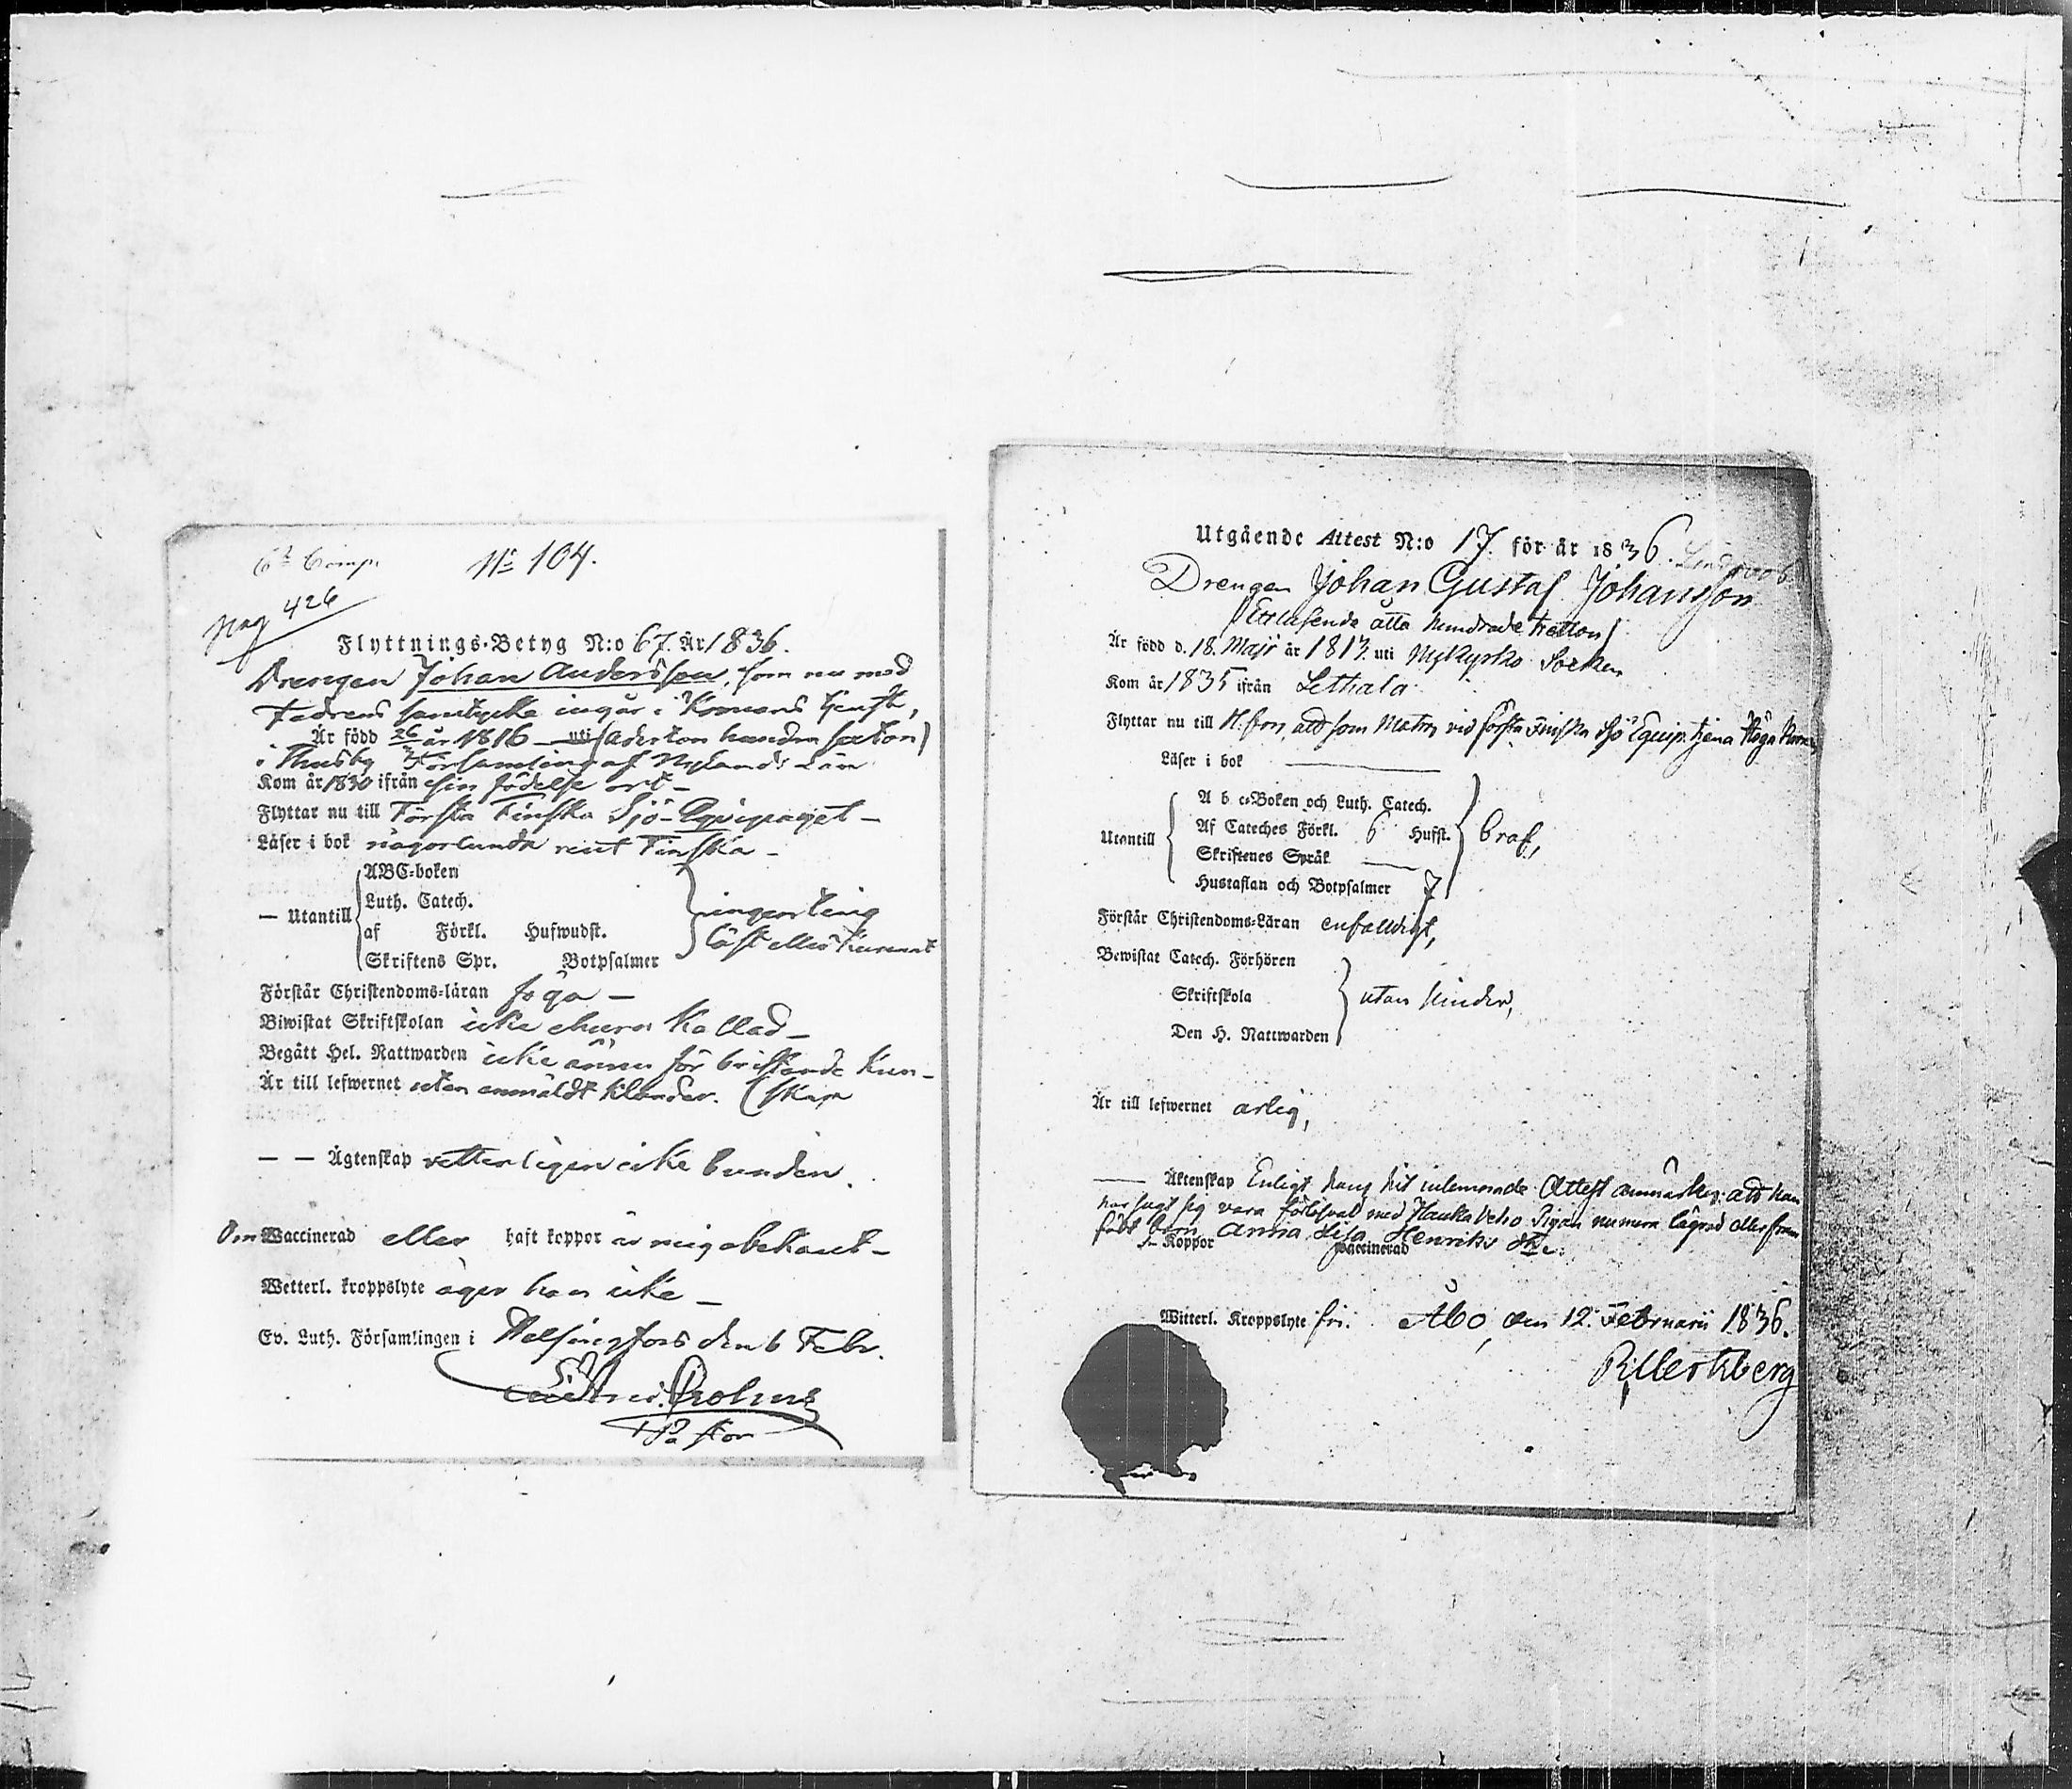 6te Comp. N:o 104.
pag 426
Flyttnings-Betyg N:o 67. År 1836.
Drengen Johan Andersson, som nu med
Fadrens samtycke ingår i Kronans tjenst,
Är född 26/3 år 1816 — uti (Aderton hundra sexton)
i Thusby Församling af Nylands Län
Kom år 1830 ifrån sin födelse ort —
Flyttar nu till Första Finska Sjö-Equipaget —
Läser i bok någorlunda rent Finska —
ABC-boken
Luth. Catech.
— Utantill
af Förkl. Hufwudst.
Skriftens Spr. Botpsalmer
ingenting
läst eller kunnat
Förstår Christendoms-läran föga —
Biwistat Skriftskolan icke ehuru kallad —
Begått Hel. Nattwarden icke ännu för bristande kun-
Är till lefwernet utan anmäldt klander. (skap
— — Ägtenskap vetterligen icke bunden.
Om Waccinerad eller haft koppor är mig obekant —
Wetterl. kroppslyte äger han icke —
Ev. Luth. Församlingen i Helsingfors den 6 Febr.
Pastor
Utgående Attest N:o 17. för år 1836.
Drengen Johan Gustaf Johansson
(Ettusende åtta hundrade tretton)
Är född d. 18. Maji år 1813. uti Nykyrko Socken
Kom år 1835 ifrån Lethala
Flyttar nu till H.fors, att som Matros vid första Finska Sjö Equip. tjena Höga Kronan
Läser i bok —
A b c-Boken och Luth. Catech.
Af Cateches Förkl. 6 Hufst.
Utantill
Skriftenes Språk —
Hustaflan och Botpsalmer 7
braf,
Förstår Christendoms-Läran enfalldigt,
Bewistat Catech. Förhören
Skriftskola
utan hinder,
Den H. Nattwarden
Är till lefwernet ärlig,
— Äktenskap Enligt hans hit inlemnade Attest anmärkes: att han
har sagt sig vara förlofvad med Hauka Pigan numera lägrad eller
födt barn Anna Lisa Henriks dtr.
Koppor Waccinerad
Witterl. Kroppslyte fri. Åbo, den 12. Februarii 1836.